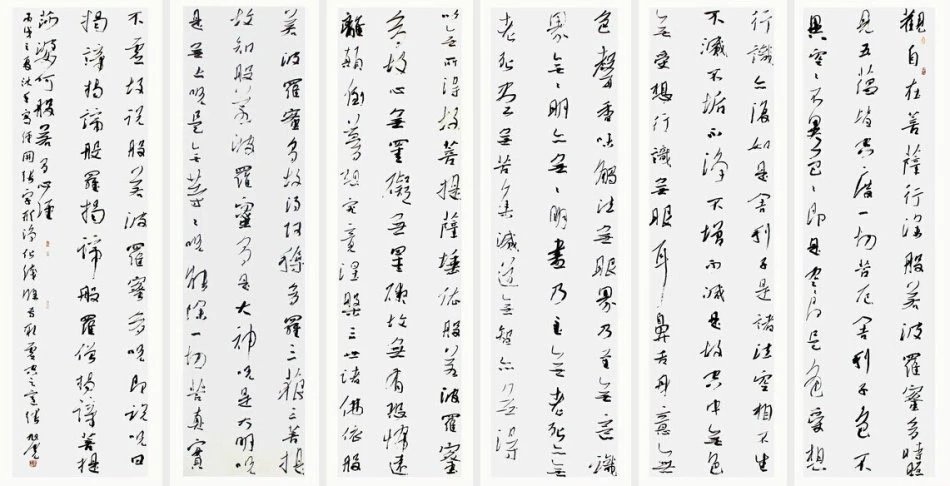 觀自在菩薩行深般若波羅蜜多時照
見五蘊皆空度一切苦厄舍利子色不
異空〻不異色〻即是空〻即是色受想
行識亦復如是舍利子是諸法空相不生
不滅不垢不淨不增不減是故空中無色
無受想行識無眼耳鼻舌身意無
色聲香味觸法無眼界乃至無意識
界無〻明亦無〻明盡乃至無老死亦無
老死盡無苦集滅道無智亦無得
以無所得故菩提薩埵依般若波羅蜜
多故心無罣礙無罣礙故無有恐怖遠
離顛倒夢想究竟涅槃三世諸佛依般
若波羅蜜多故得阿耨多羅三藐三菩提
故知般若波羅蜜多是大神咒是大明咒
是無上咒是無等〻咒能除一切苦真實
不虛故說般若波羅蜜多咒即說咒曰
揭諦揭諦般羅揭諦般羅僧揭諦菩提
莎婆訶般若多心經